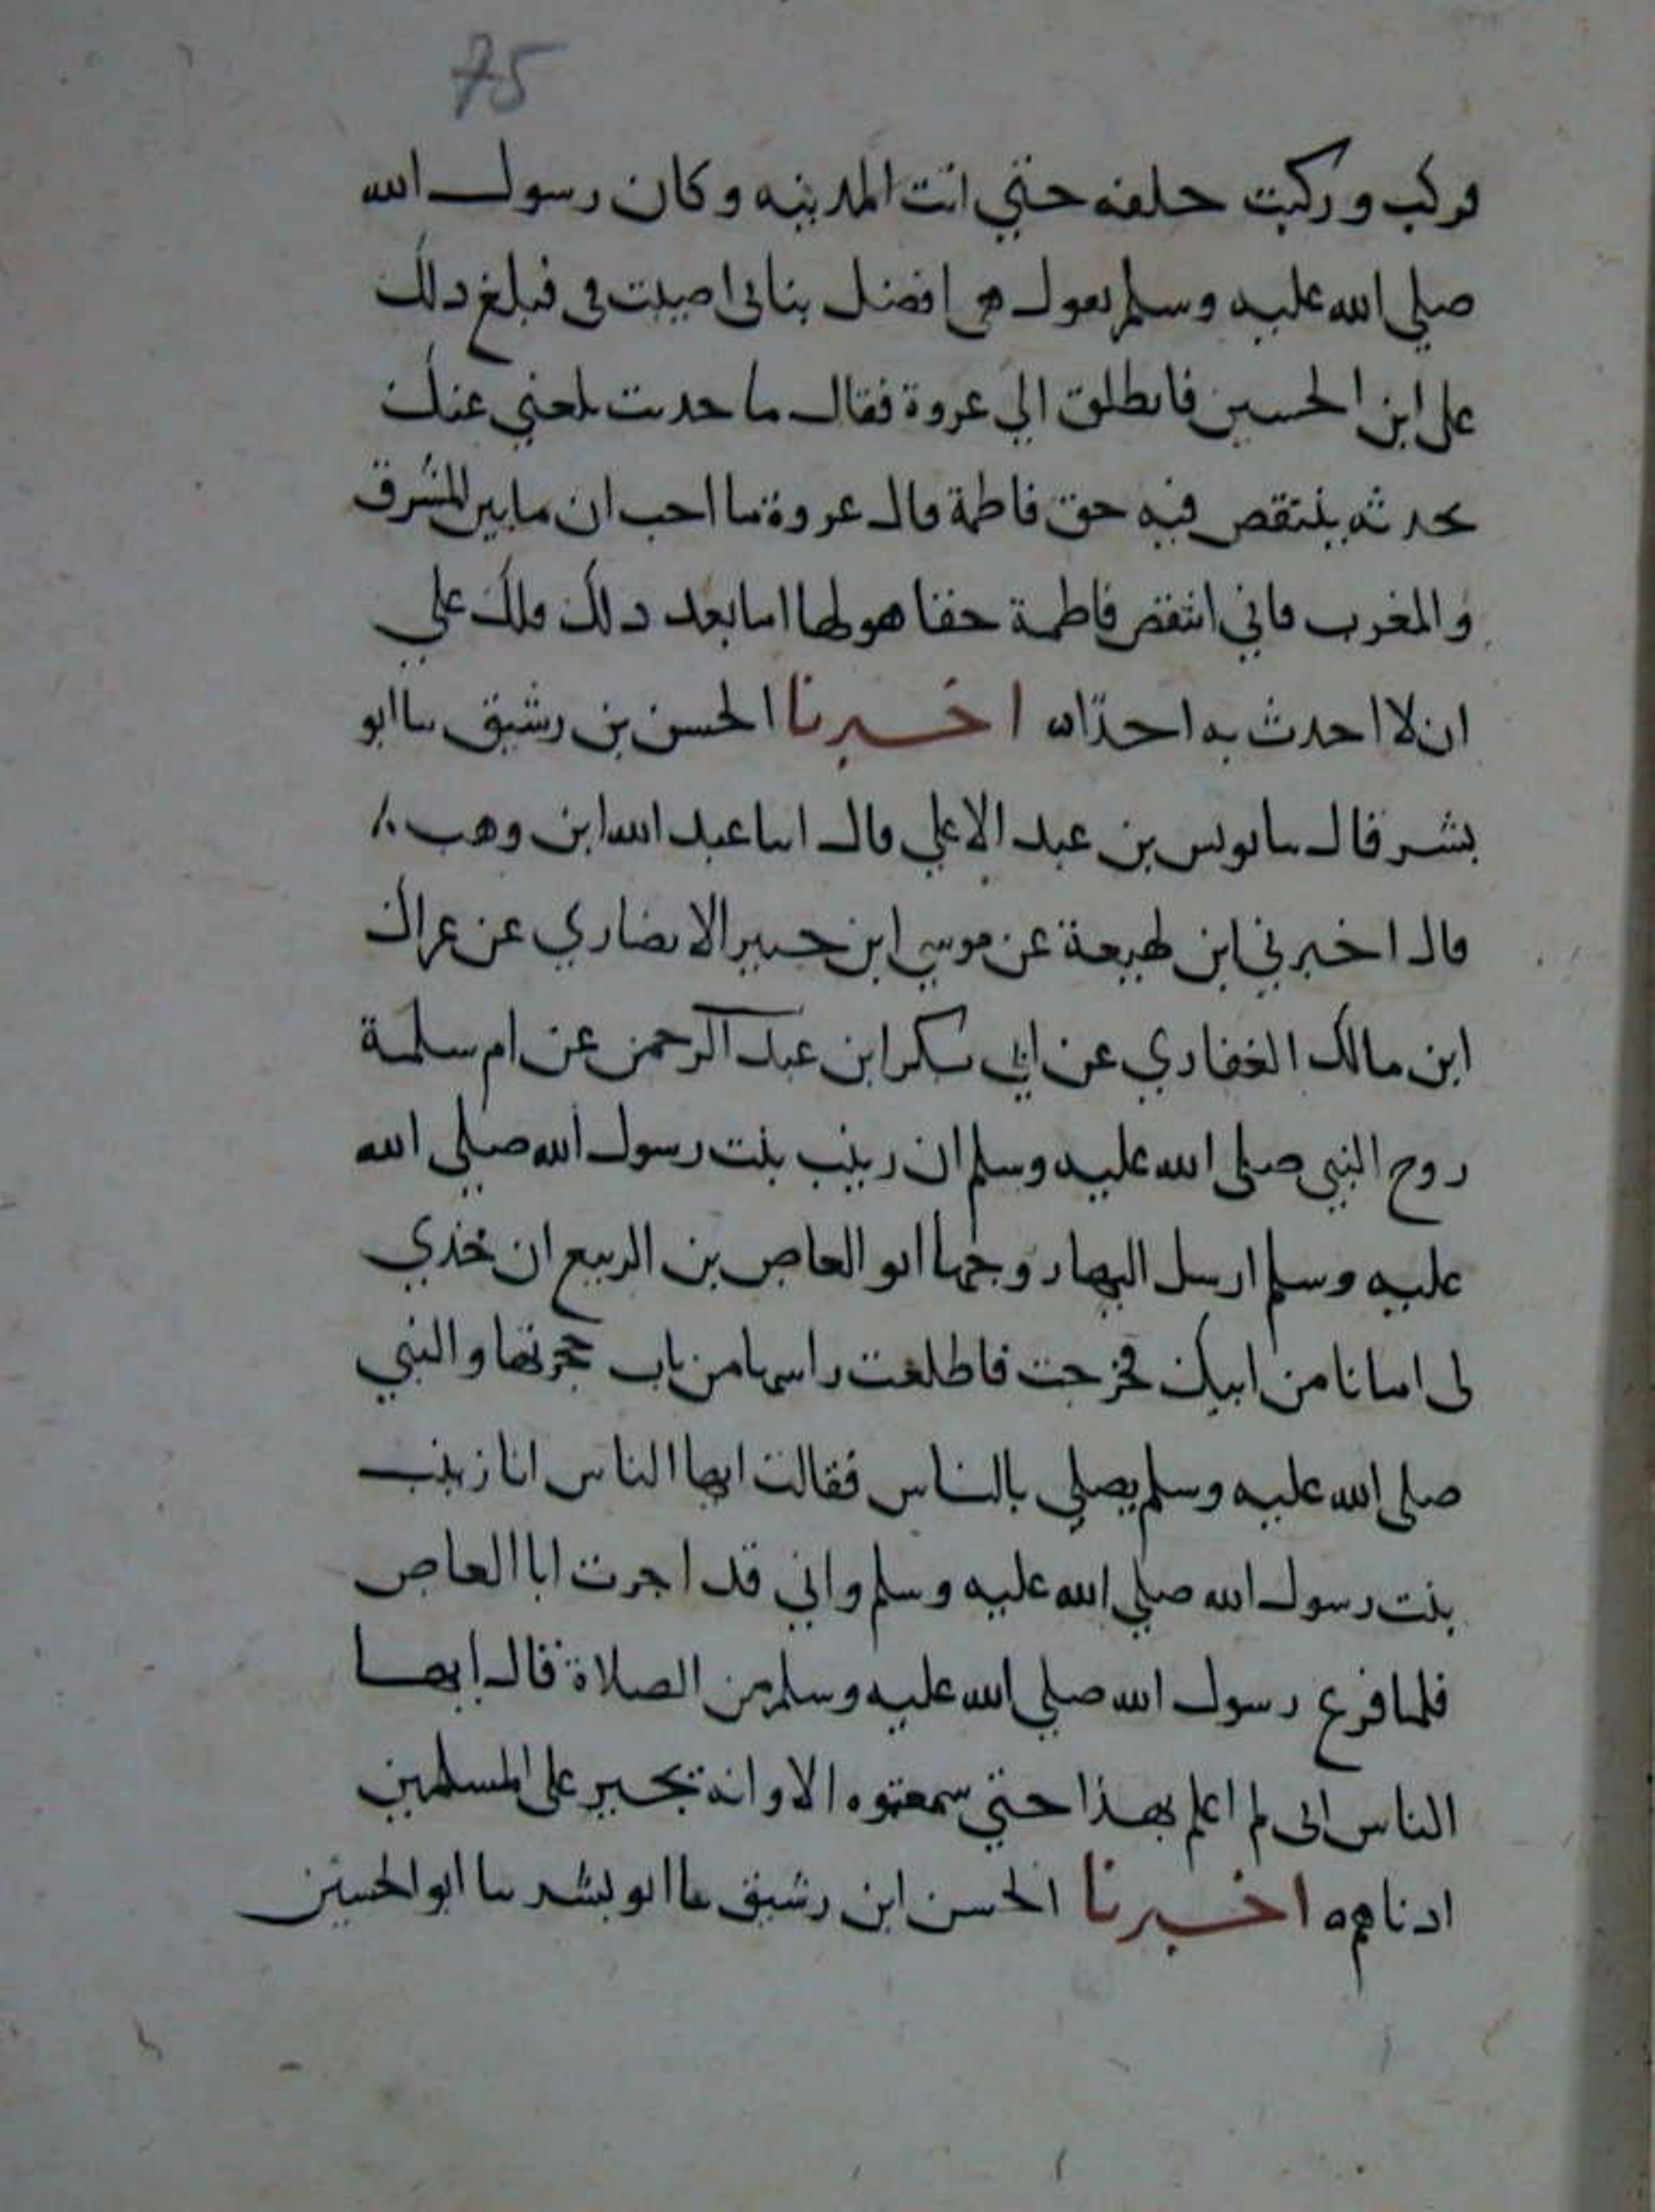 75
فركب وركبت خلفه حتي اتت المدينه وكان رسول الله
صلي الله عليه وسلم يقول هي افضل بناتي اصيبت في فبلغ ذلك
علي ابن الحسين فانطلق الي عروة فقال ما حديث بلغني عنك
تحدثه ينتقص فيه حق فاطمة قال عروة ما احب ان ما بين المشرق
والمغرب واني انتقص فاطمة حقا هو لها اما بعد ذلك فلك علي
ان لا احدث به احدا ه اخبرنا الحسن بن رشيق سا ابو
بشر قال سا يونس بن عبد الاعلي قال اسا عبد الله ابن وهب
قال اخبرني ابن لهيعة عن موسي ابن جبير الانصاري عن عراك
ابن مالك الغفاري عن ابي بكر ابن عبد الرحمن عن ام سلمة
زوج النبي صلي الله عليه وسلم ان زينب بنت رسول الله صلي الله
عليه وسلم ارسل اليها زوجها ابو العاص بن الربيع ان خذي
لي امانا من ابيك فخرجت فاطلعت راسها من باب حجرتها والنبي
صلي الله عليه وسلم يصلي بالناس فقالت ايها الناس انا زينب
بنت رسول الله صلي الله عليه وسلم واني قد اجرت ابا العاص
فلما فرغ رسول الله صلي الله عليه وسلم من الصلاة قال ايها
الناس اني لم اعلم بهذا حتي سمعتموه الا وانه يجير علي المسلمين
ادناهم ه اخبرنا الحسن ابن رشيق سا ابو بشر سا ابو الحسين